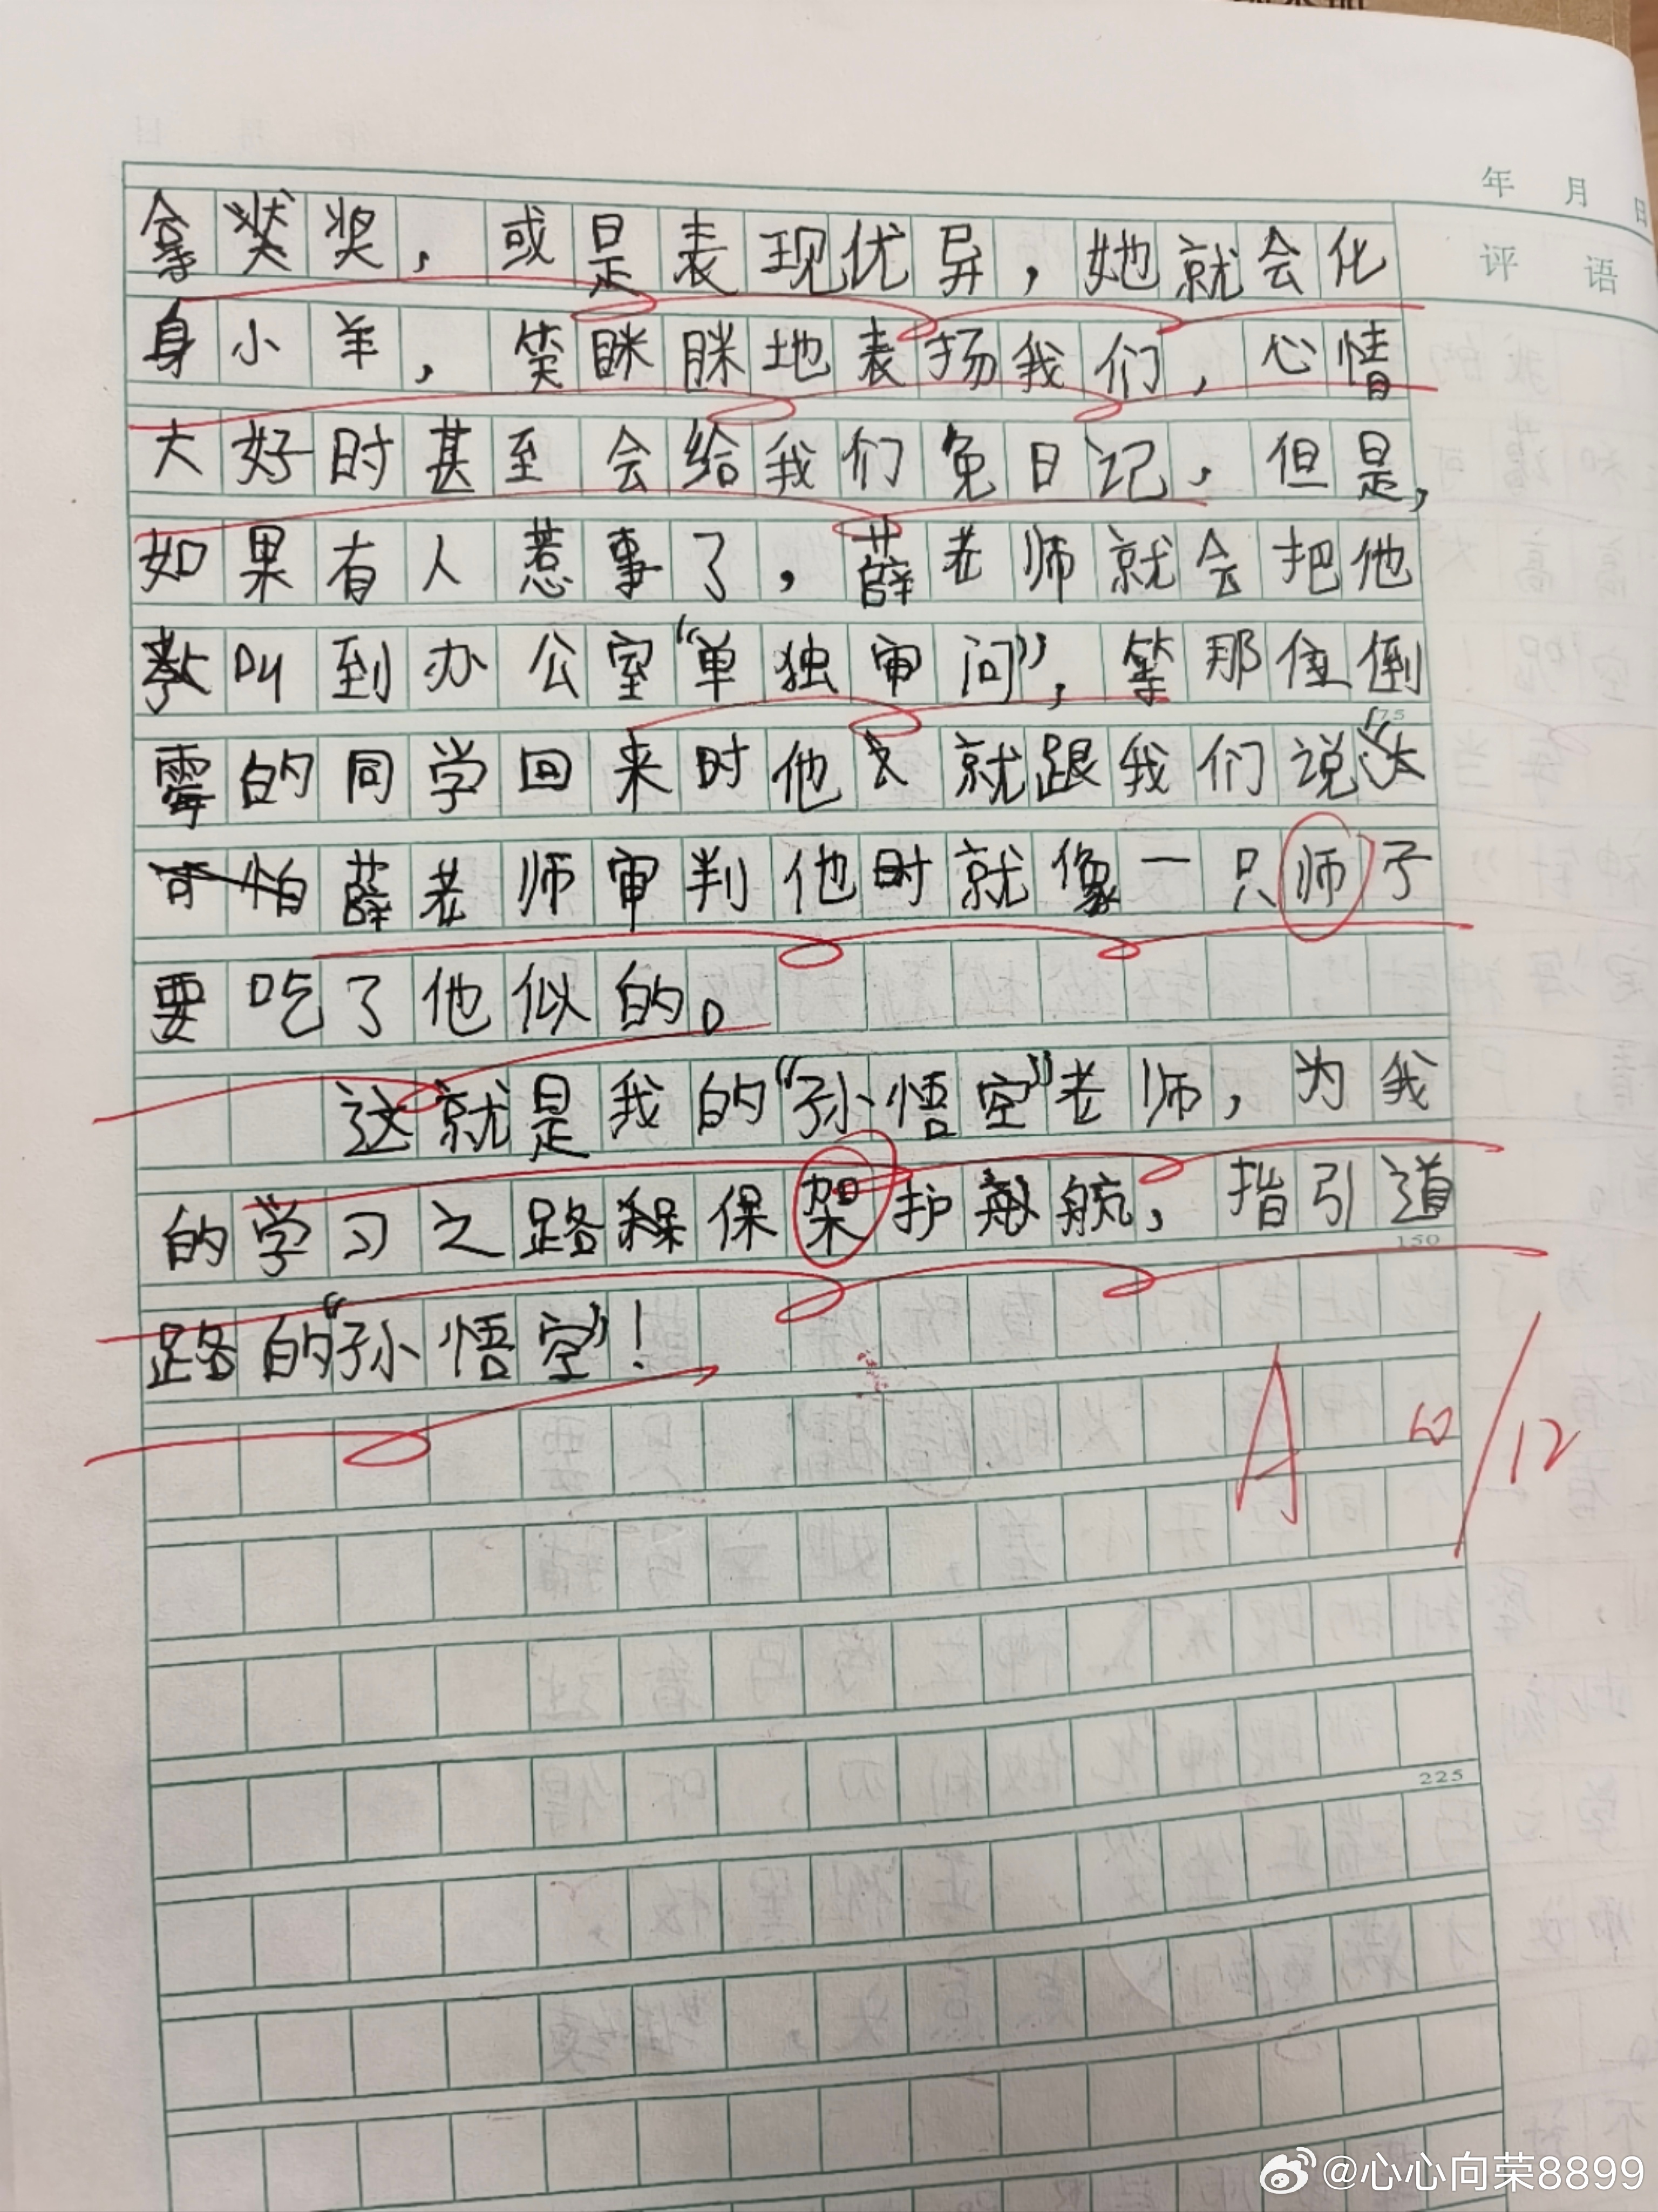 年 月 日
评 语
拿奖，或是表现优异，她就会化
身小羊，笑眯眯地表扬我们，心情
大好时甚至会给我们免日记，但是，
如果有人惹事了，薛老师就会把他
叫到办公室“单独审问”，等那位倒
霉的同学回来时他就跟我们说“
薛老师审判他时就像一只师子
要吃了他似的。
这就是我的“孙悟空”老师，为我
的学习之路保架护航，指引道
路的“孙悟空”！
75
150
225
A
/12
@心心向荣8899